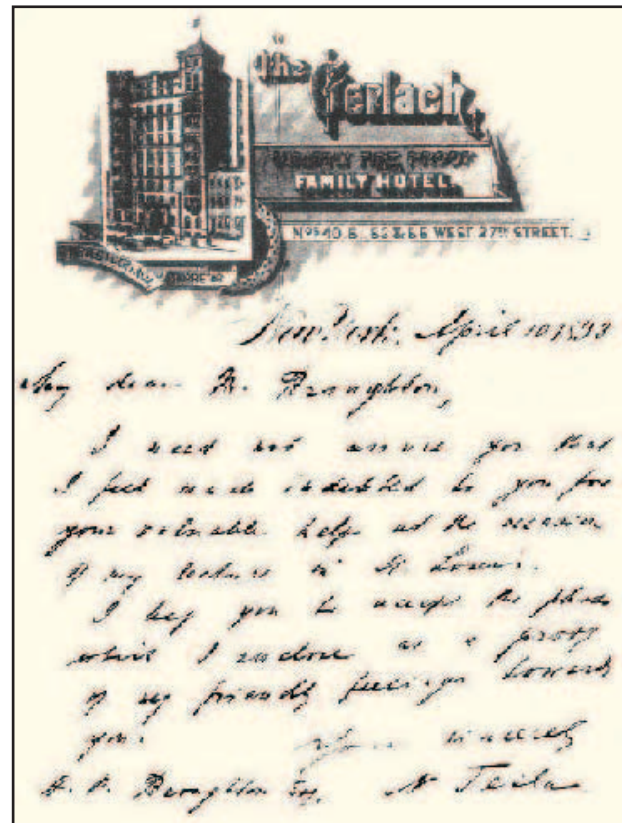 The Gerlach,
FAMILY HOTEL
WEST 27TH STREET.
New York, April 10 1893
My dear Mr. Broughton,
I need not assure you that
I feel much indebted to you for
your valuable help at the occasion
of my lecture in St Louis.
I beg you to accept the photo
which I enclose as a proof
of my friendly feelings towards
you Yours sincerely
H. P. Broughton Esq. N Tesla